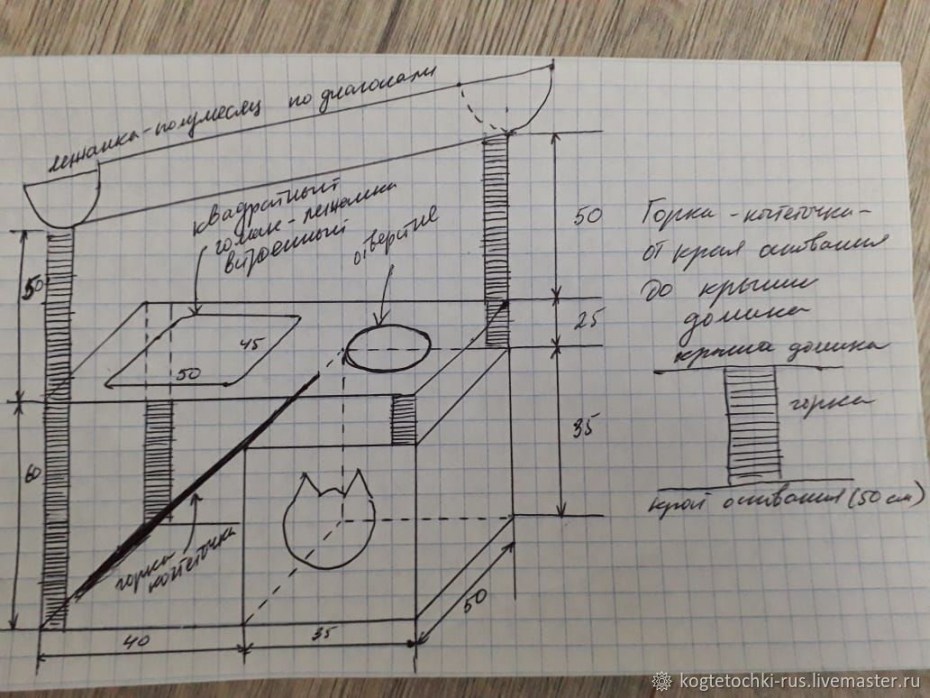 лежанка-полумесяц по диагонали
квадратный
гамак-лежанка
встроенный
отверстие
50
45
50
60
50
25
35
Горка-когтеточка-
от края основания
до крыши
домика
крыша домика
горка
край основания (50 см)
горка
когтеточка
40
35
50
kogtetochki-rus.livemaster.ru